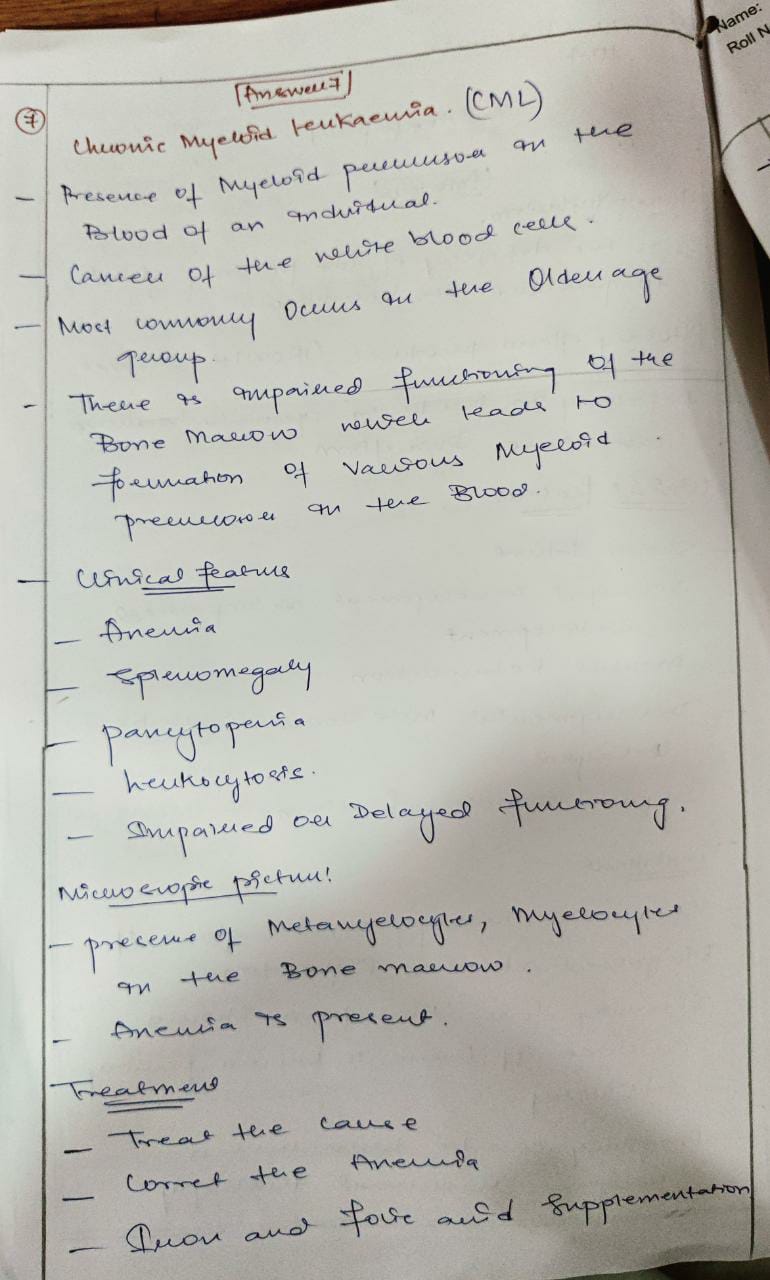 Name:
Roll N
Answer 7
7
Chronic Myeloid Leukaemia. (CML)
- Presence of Myeloid precursor in the
Blood of an individual.
- Cancer of the white blood cells.
- Most commonly Occurs in the Older age
group.
- There is impaired functioning of the
Bone Marrow which leads to
formation of Various Myeloid
precursors in the Blood.
- Clinical features
- Anemia
- Splenomegaly
- Pancytopenia
- Leukocytosis.
- Impaired or Delayed functioning.
Microscopic picture!
- presence of Metamyelocytes, Myelocytes
in the Bone marrow.
- Anemia is present.
Treatment
- Treat the cause
- Correct the Anemia
- Iron and folic acid Supplementation